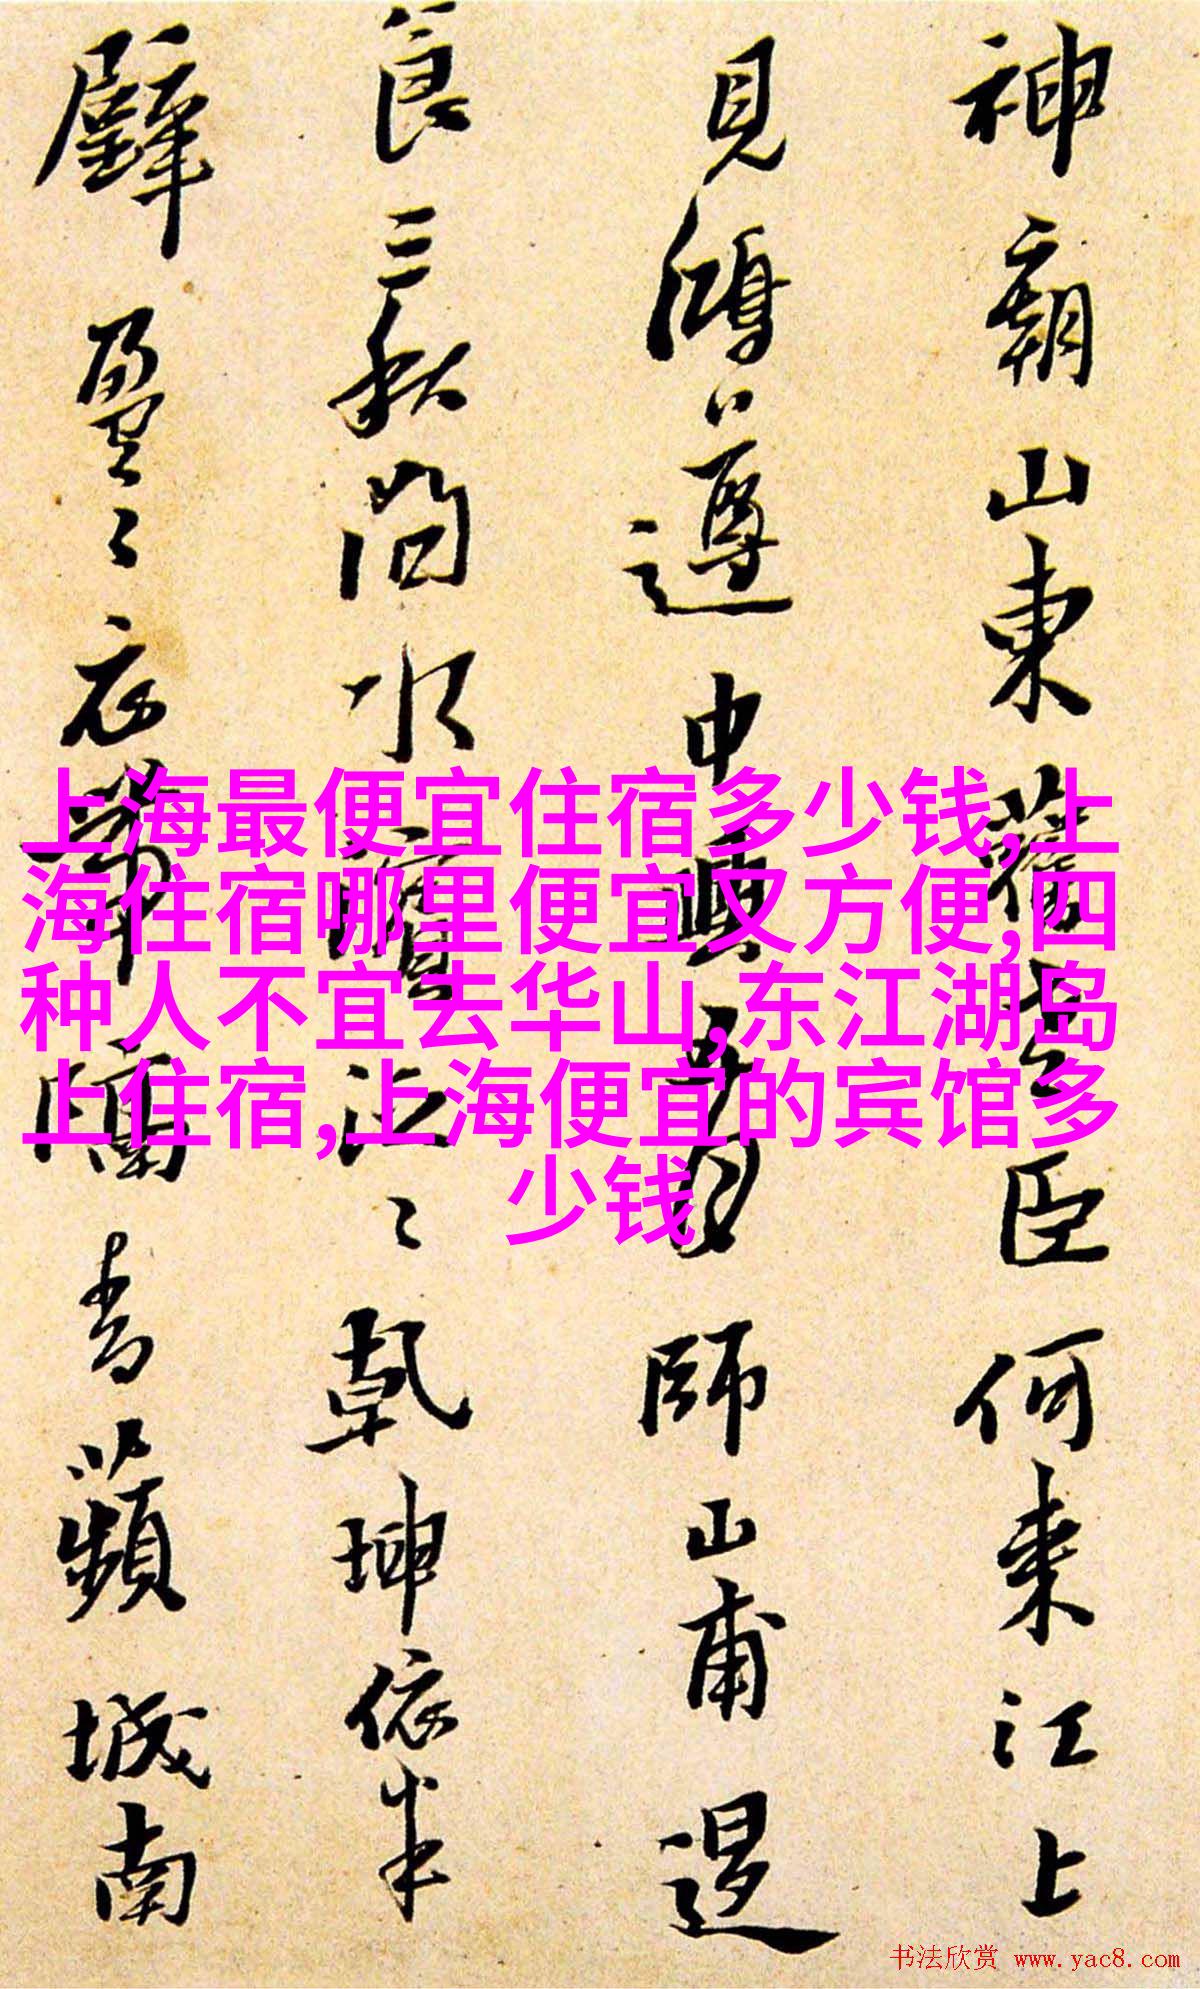 神廟山東舊
臣何來江上
見鴻遵
中興
師山甫遏
食三秋間水
江〻乾坤依半
壁
盈〻衣帶
青蘋城南
上海最便宜住宿多少钱,上
海住宿哪里便宜又方便,四
种人不宜去华山,东江湖岛
上住宿,上海便宜的宾馆多
少钱
书法欣赏 www.yac8.com